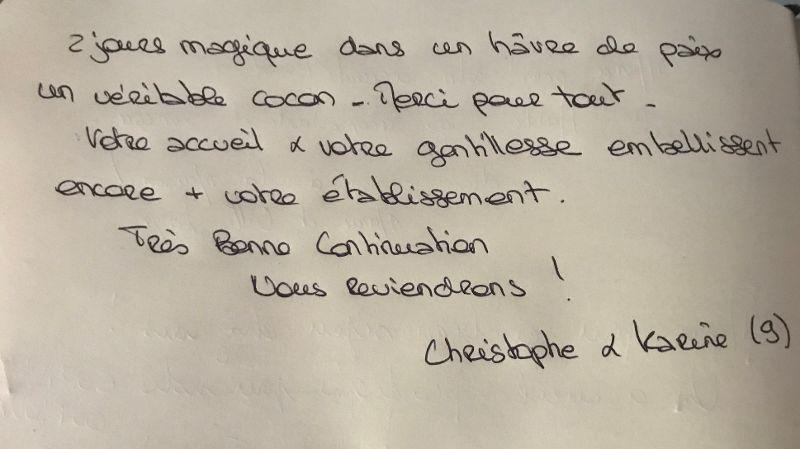 2 jours magique dans un hâvre de paix
un véritable cocon - Merci pour tout -
Votre accueil & votre gentillesse embellissent
encore + votre établissement.
Très Bonne Continuation
Nous reviendrons !
Christophe & Karine (9)